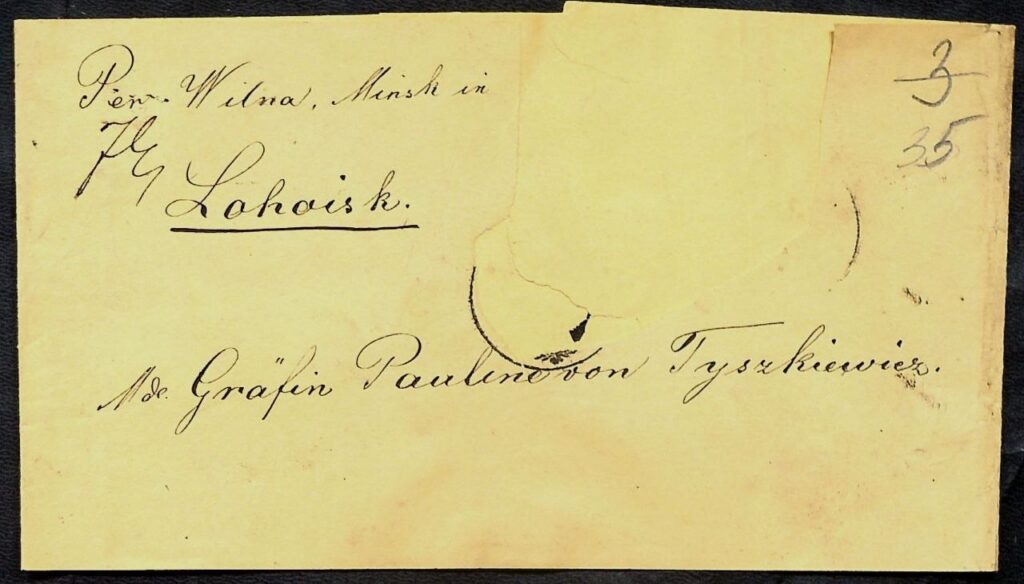 Per. Wilna, Minsk in
Lohoisk.
Mde. Gräfin Pauline von Tyszkiewicz.
3
35